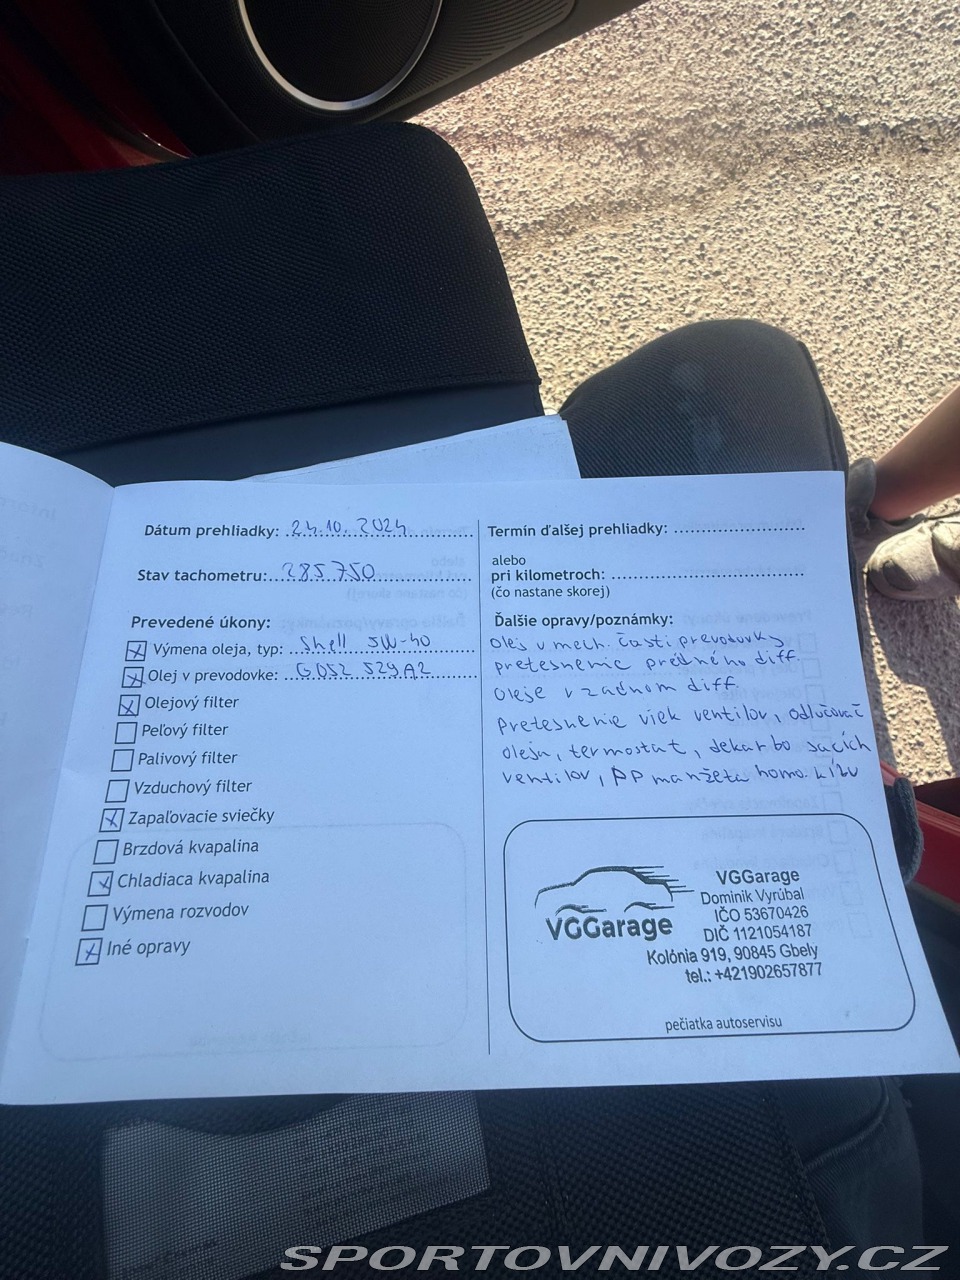 Dátum prehliadky: 24.10. 2024
Stav tachometru: 285 750
Prevedené úkony:
Výmena oleja, typ: Shell 5W-40
Olej v prevodovke: G052 529A2
Olejový filter
Peľový filter
Palivový filter
Vzduchový filter
Zapaľovacie sviečky
Brzdová kvapalina
Chladiaca kvapalina
Výmena rozvodov
Iné opravy
Termín ďalšej prehliadky:
alebo
pri kilometroch:
(čo nastane skorej)
Ďalšie opravy/poznámky:
olej v mech. časti prevodovky
pretesnenie predného diff.
oleje v zadnom diff.
Pretesnenie viek ventilov, odlučovač
oleja, termostat, dekarbo sacích
ventilov, PP manžeta homo. kĺbu
VGGarage
VGGarage
Dominik Vyrúbal
IČO 53670426
DIČ 1121054187
Kolónia 919, 90845 Gbely
tel.: +421902657877
pečiatka autoservisu
SPORTOVNIVOZY.CZ